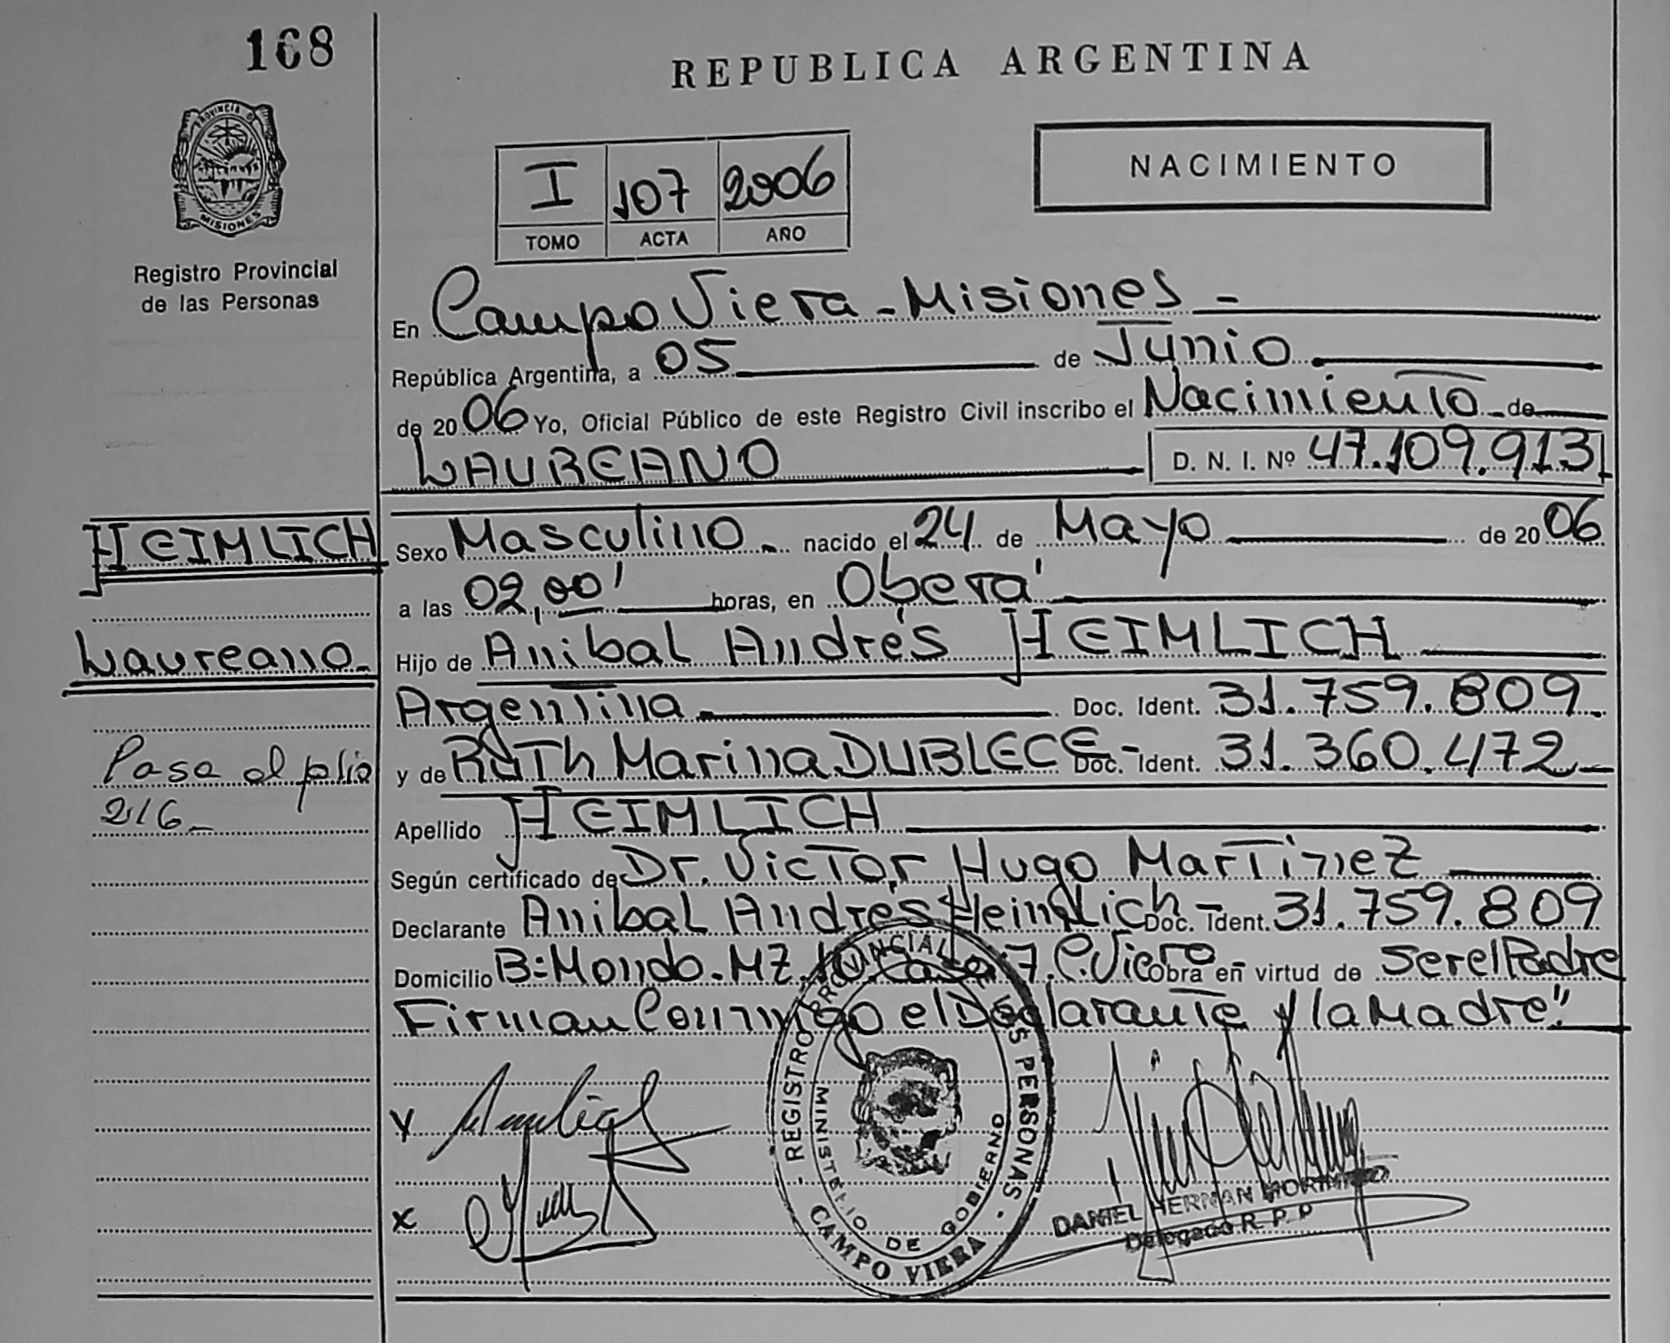 168
REPUBLICA ARGENTINA
PROVINCIA DE
MISIONES
Registro Provincial
de las Personas
I 107 2006
TOMO ACTA AÑO
NACIMIENTO
En Campo Viera - Misiones -
República Argentina, a 05 de Junio
de 2006 Yo, Oficial Público de este Registro Civil inscribo el Nacimiento de
LAUREANO D. N. I. Nº 47.109.913
HEIMLICH
Laureano
Sexo Masculino nacido el 24 de Mayo de 2006
a las 02,00' horas, en Oberá
Hijo de Anibal Andrés HEIMLICH
Argentina Doc. Ident. 31.759.809.
y de Ruth Marina DUBLECE - Doc. Ident. 31.360.472
Pasa al folio
216
Apellido HEIMLICH
Según certificado de Dr. Victor Hugo Martinez
Declarante Anibal Andrés Heimlich - Doc. Ident. 31.759.809
Domicilio B: Mondo. MZ. Casa 7. C. Viera Obra en virtud de ser el Padre
Firman Conmigo el Declarante y la Madre"
REGISTRO PROVINCIAL DE LAS PERSONAS
MINISTERIO DE GOBIERNO
CAMPO VIERA
Y
X
DANIEL HERNAN
Delegado R. P. P